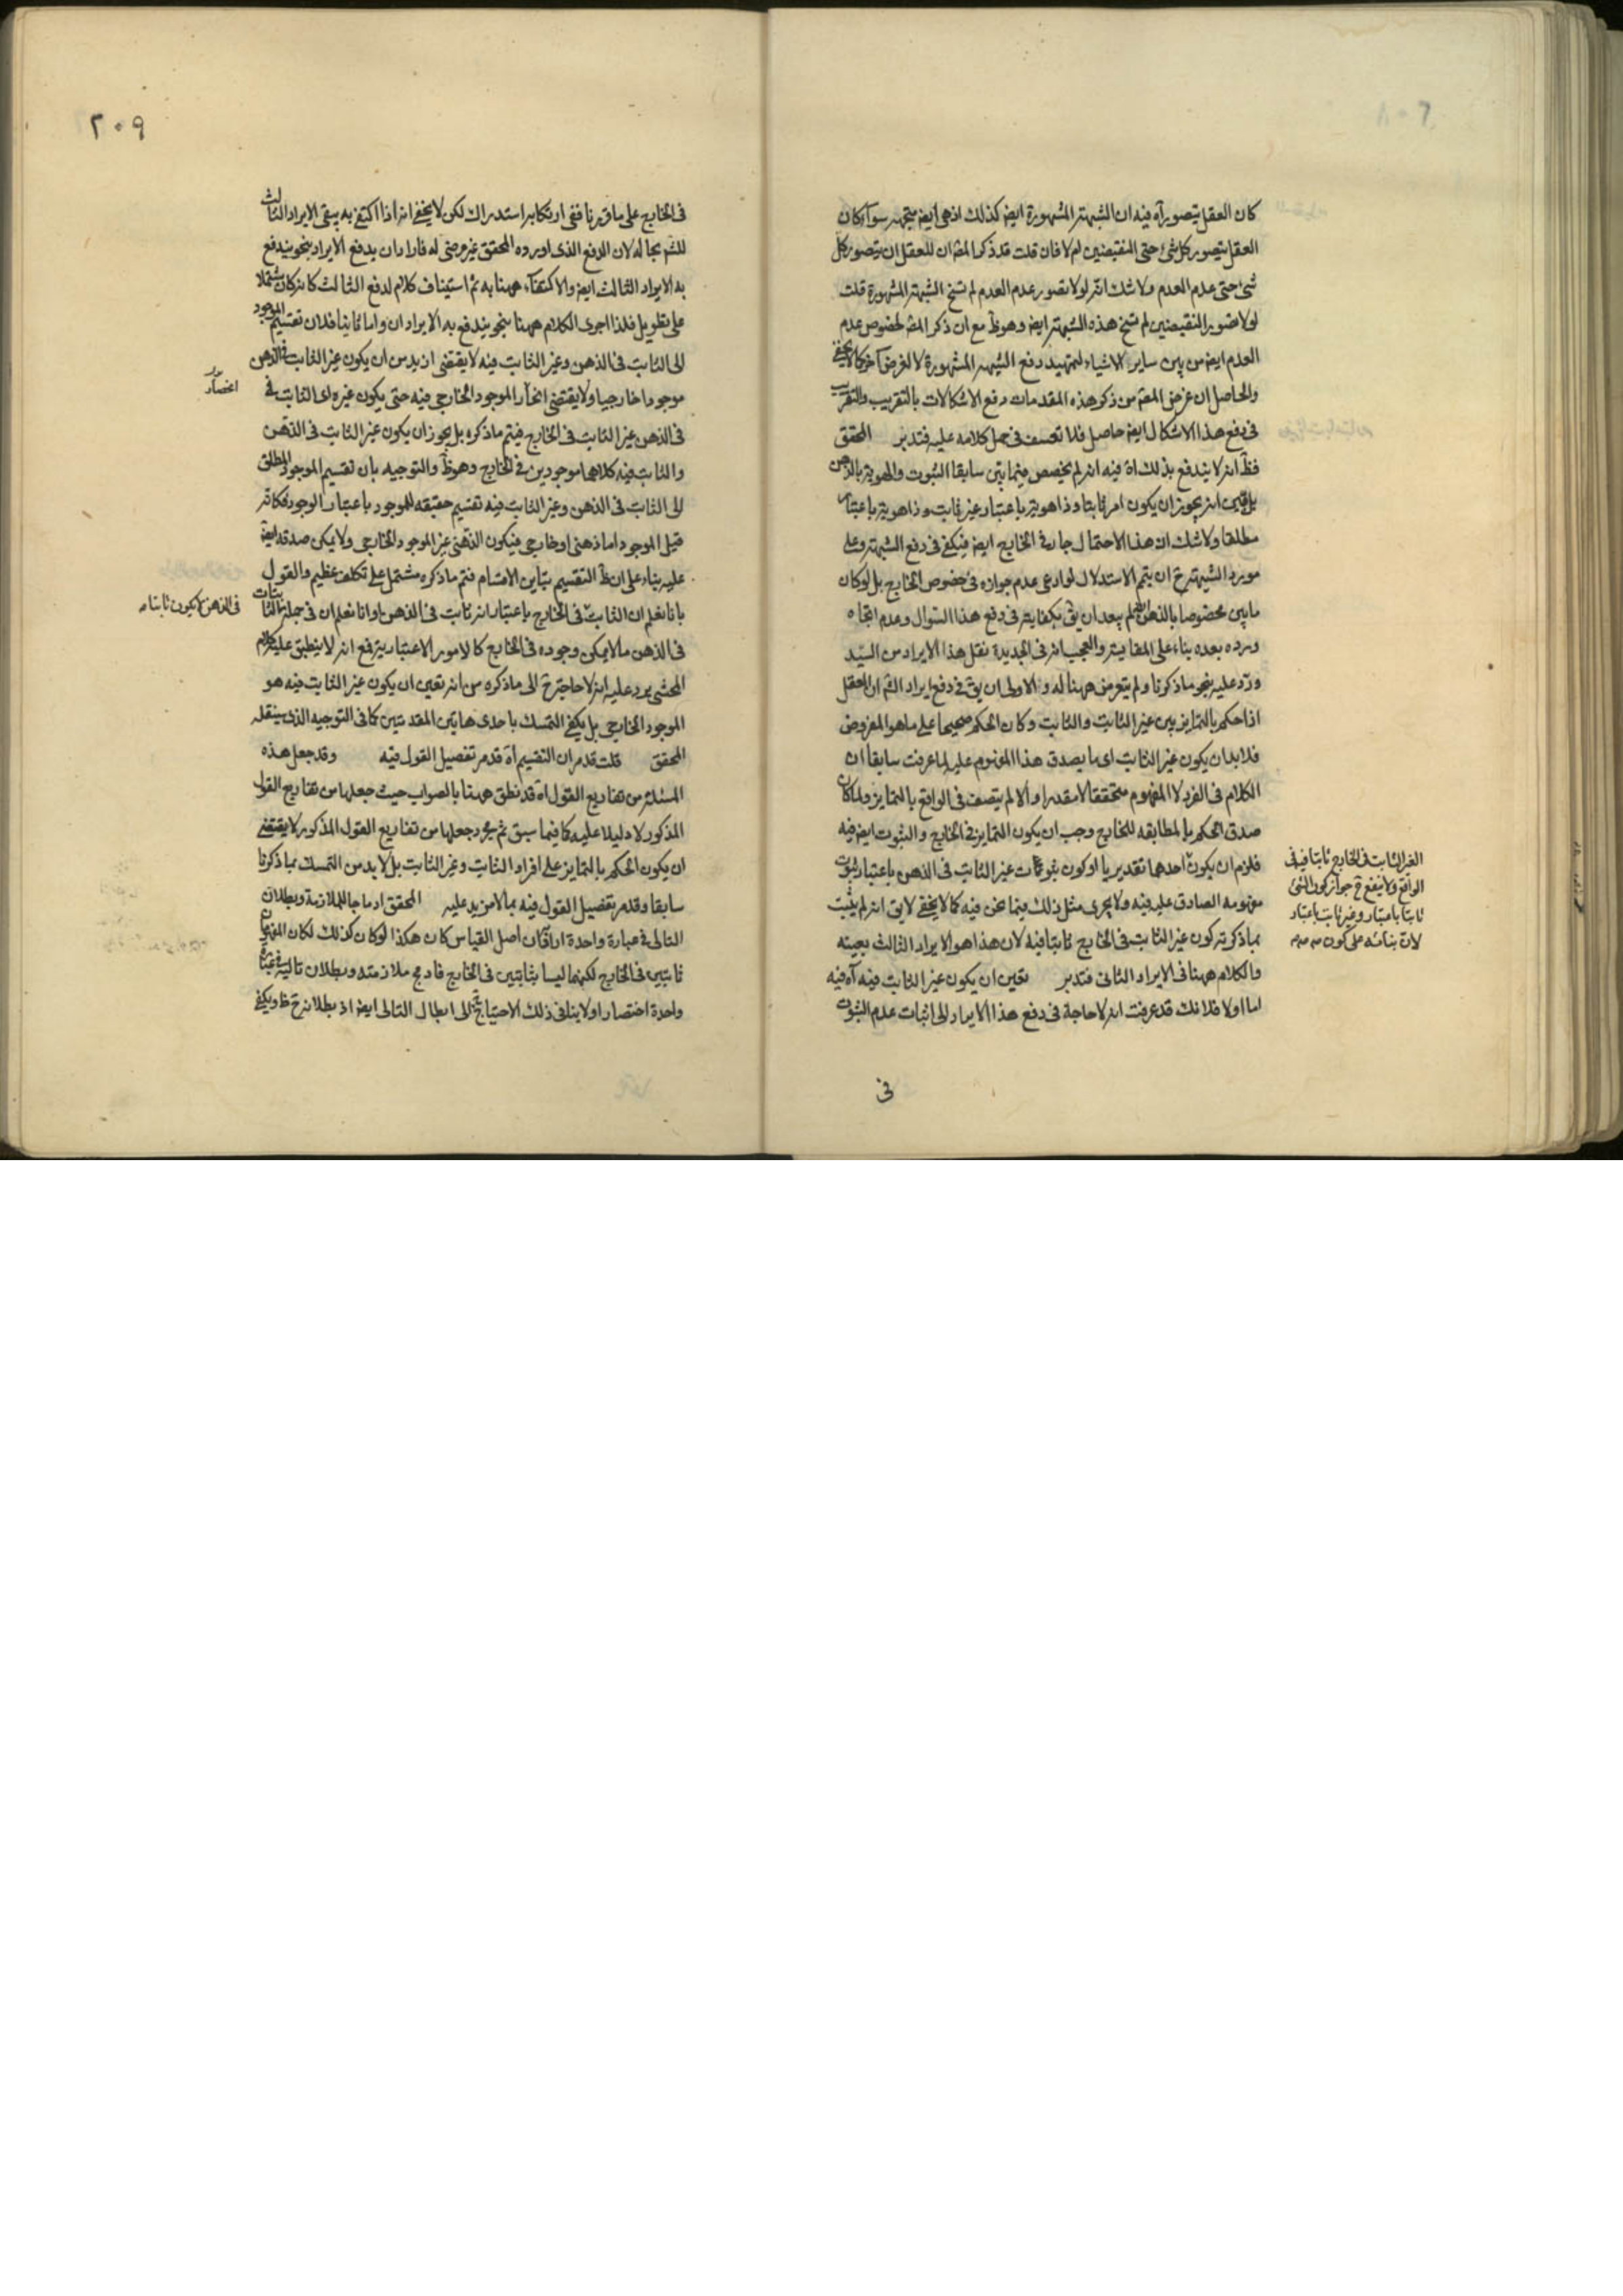 كان العقل يتصوره آه فيه ان الشبهة المشهورة ايض كذلك اذ هى ايض متجهه سواء كان
العقل يتصور كل شئ حتى النقيضين ام لا فان قلت قد ذكر المصّ ان للعقل ان يتصور كل
شئ حتى عدم العدم ولا شك انه لو لا تصور عدم العدم لم تسخ الشبهة المشهورة قلت
لو لا تصور النقيضين لم تسخ هذه الشبهة ايض وهو ظ مع ان ذكر المصّ لخصوص عدم
العدم ايض من بين ساير الاشياء لتمهيد دفع الشبهه المشهورة لا لغرض آخر كما لا يخفى
والحاصل ان غرض المصّ من ذكر هذه المقدمات دفع الاشكالات بالتقريب والتقريب
فى دفع هذا الاشكال ايض حاصل فلا تعسف فى حمل كلامه عليه فتدبر المحقق
فظ انه لا يندفع بذلك آه فيه انه لم يخصص فيما بيّن سابقا الثبوت والهوية بالذهن
بل بيّن انه يجوز ان يكون امر ثابتا وذا هوية باعتبار غير ثابت وذا هوية باعتبار
مطلقا ولا شك ان هذا الاحتمال جار فى الخارج ايض فيكفى فى دفع الشبهة وعلى
مورد الشبهة ح ان يتم الاستدلال لو ادعى عدم جوازه فى خصوص الخارج بل لو كان
ما بيّن مخصوصا بالذهن لم يبعد ان يق بكفايته فى دفع هذا السوال وعدم اتجاه
وروده بعده بناء على المقايسة والعجب انه فى الجديدة نقل هذا الايراد من السيّد
وردّ عليه بنحو ما ذكرنا ولم يتعرض ههنا له والاولى ان يق فى دفع ايراد الشّ ان العقل
اذا حكم بالتمايز بين غير الثابت والثابت وكان الحكم صحيحا على ما هو المفروض
فلا بد ان يكون غير الثابت اى ما يصدق هذا المفهوم عليه لما عرفت سابقا ان
الكلام فى الفرد لا المفهوم متحققا لا مقدرا والا لم يتصف فى الواقع بالتمايز ولما كان
صدق الحكم بالمطابقه للخارج وجب ان يكون التمايز فى الخارج والثبوت ايض فيه
فلزم ان يكون احدهما تقديريا او كون ثبوت غير الثابت فى الذهن باعتبار ثبوت
مفهومه الصادق عليه فيه ولا يجرى مثل ذلك فيما نحن فيه كما لا يخفى لا يق انه لم يثبت
بما ذكرته كون غير الثابت فى الخارج ثابتا فيه لان هذا هو الايراد الثالث بعينه
والكلام ههنا فى الايراد الثانى فتدبر تعين ان يكون غير الثابت فيه آه فيه
اما اولا فلانك قد عرفت انه لا حاجة فى دفع هذا الايراد الى اثبات عدم الثبوت
فى
الغير الثابت فى الخارج ثابتا فيه فى
الواقع ولا ينفع ح جواز كون الشئ
ثابتا باعتبار وغير ثابت باعتبار
٢٠٩
فى الخارج على ما قررنا ففى ارتكابه استدراك لكن لا يخفى انه اذا اكتفى به يبقى الايراد الثالث
للشّ بحاله لان الدفع الذى اورده المحقق غير مرضى له فاراد ان يدفع الايراد بنحو يندفع
به الايراد الثالث ايض والاكتفاء ههنا به ثم استيناف كلام لدفع الثالث كانه كان مشتملا
على تطويل فلذا اجرى الكلام ههنا بنحو يندفع به الايرادان واما ثانيا فلان تقسيم الموجود
الى الثابت فى الذهن وغير الثابت فيه لا يقتضى ازيد من ان يكون غير الثابت فى الذهن
موجودا خارجيا ولا يقتضى انحصار الموجود الخارجى فيه حتى يكون غيره اى الثابت فى
فى الذهن غير الثابت فى الخارج فيتم ما ذكره بل يجوز ان يكون غير الثابت فى الذهن
والثابت فيه كلاهما موجودين فى الخارج وهو ظ والتوجيه بان تقسيم الموجود المطلق
الى الثابت فى الذهن وغير الثابت فيه تقسيم حقيقه للموجود باعتبار الوجود فكانه
قيل الموجود اما ذهنى او خارجى فيكون الذهنى غير الموجود الخارجى ولا يمكن صدقه ايض
عليه بناء على ان ظ التقسيم تباين الاقسام فتم ما ذكره مشتمل على تكلف عظيم والقول
بانا نعلم ان الثابت فى الخارج باعتبار انه ثابت فى الذهن او انا نعلم ان فى جملة الثابتات
فى الذهن ما لا يمكن وجوده فى الخارج كالامور الاعتبارية فمع انه لا ينطبق عليه كلام
المحشى يرد عليه انه لا حاجة ح الى ما ذكره من انه تعين ان يكون غير الثابت فيه هو
الموجود الخارجى بل يكفى التمسك باحدى هاتين المقدمتين كما فى التوجيه الذى سينقله
المحقق قلت قد مر ان التقسيم آه قد مر تفصيل القول فيه وقد جعل هذه
المسئلة من تفاريع القول آه قد نطق ههنا بالصواب حيث جعلها من تفاريع القول
المذكور لا دليلا عليه كما فيما سبق ثم مجرد جعلها من تفاريع القول المذكور لا يقتضى
ان يكون الحكم بالتمايز على افراد الثابت وغير الثابت بل لا بد من التمسك بما ذكرنا
سابقا وقد مر تفصيل القول فيه بما لا مزيد عليه المحقق ادماجا للملازمة وبطلان
التالى فى عبارة واحدة اراد ان اصل القياس كان هكذا لو كان كذلك لكان المفهومان
ثابتين فى الخارج لكنهما ليسا بثابتين فى الخارج فادمج ملازمته وبطلان تاليه فى عبارة
واحدة اختصارا ولا ينافى ذلك الاحتياج الى ابطال التالى ايض اذ بطلانه ح ظ ويكفى
انحصار
فى الذهن لا يكون ثابتا